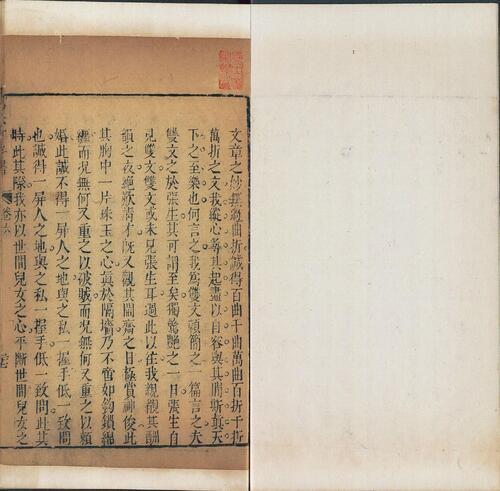 文章之妙無過曲折誠得百曲千曲萬曲百折千折
萬折之文我縱心尋其起盡以自容與其間斯真天
下之至樂也何言之我爲雙文賴簡之一篇言之夫
雙文之於張生其可謂至矣獨驚艷之一日張生自
見雙文雙文或未見張生耳過此以往我親覩其酬
韻之夜絕歎清才旣又觀其鬧齋之日極賞神俊此
其胸中一片珠玉之心真於隔墻乃不啻如鉤鎖綿
纏而况無何又重之以破賊而况無何又重之以賴
婚此誠不得一屏人之地與之私一握手低一致問
也誠得一屏人之地與之私一握手低一致問此其
時此其際我亦以世間兒女之心平斷世間兒女之
卷六